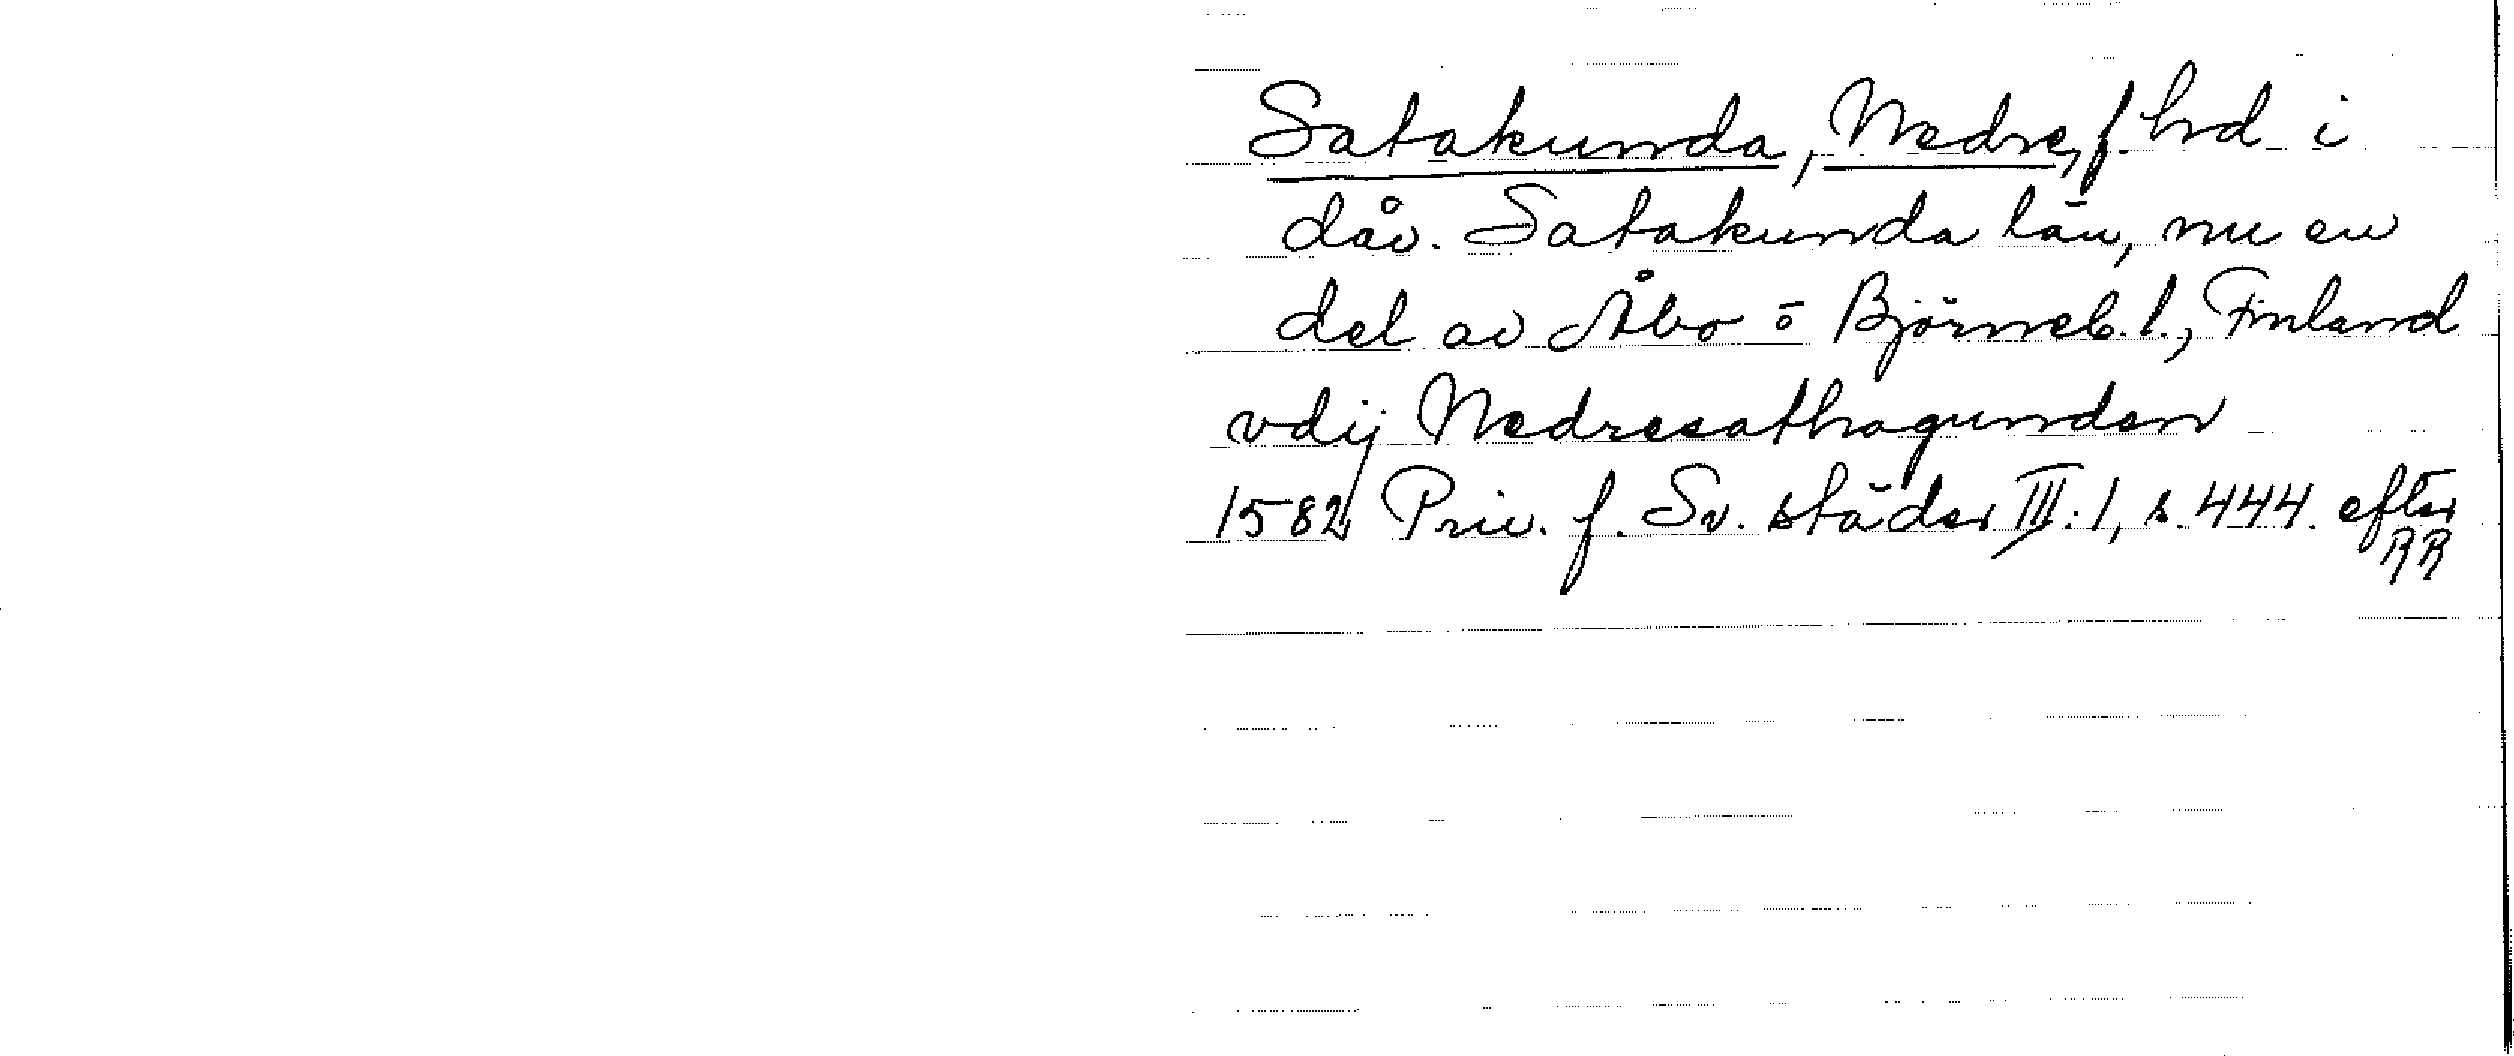 Satakunda, Nedre, f. hd i
dåv. Satakunda län, nu en
del av Åbo o Björneb. l., Finland
vdij Nedresathagunden
1582 Priv. f. Sv. städer III:1, s. 444 efter
RR